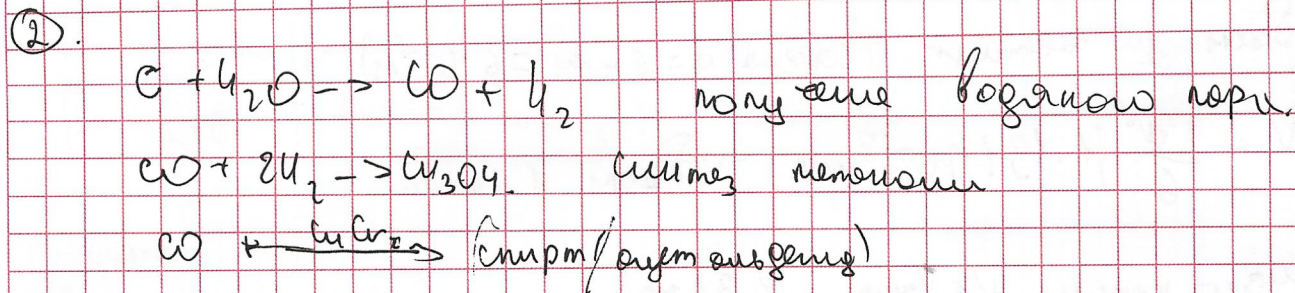 2.
C + H₂O -> CO + H₂ получение водяного пара.
CO + 2H₂ -> CH₃OH. синтез метанола
CO (спирт/ацетальдегид)